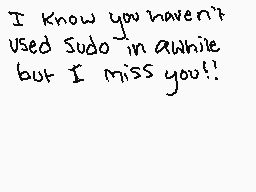 I know you haven't
used Sudo in awhile
but I miss you!!